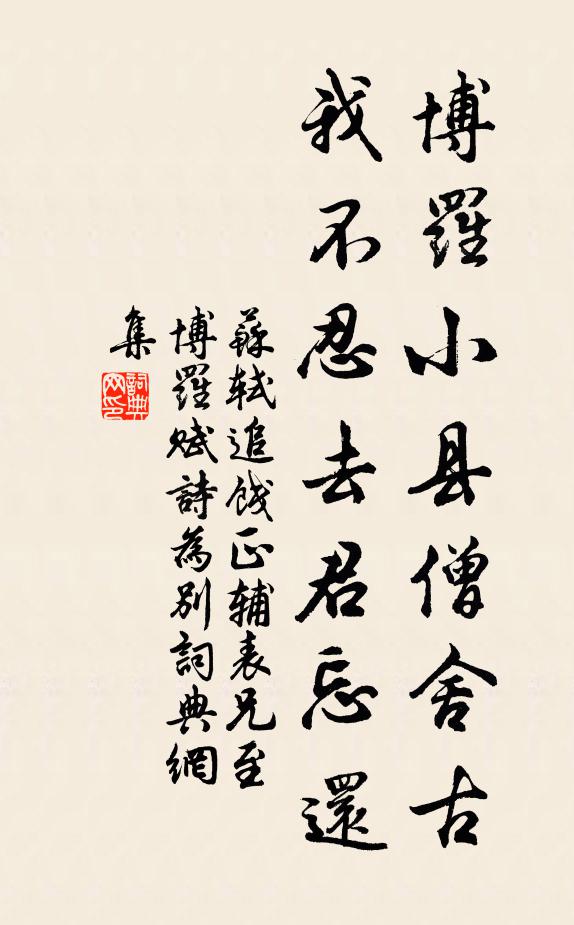 博羅小县僧舍古
我不忍去君忘還
蘇軾追餞正輔表兄至
博羅賦詩為別詞典網
集
詞典
网印